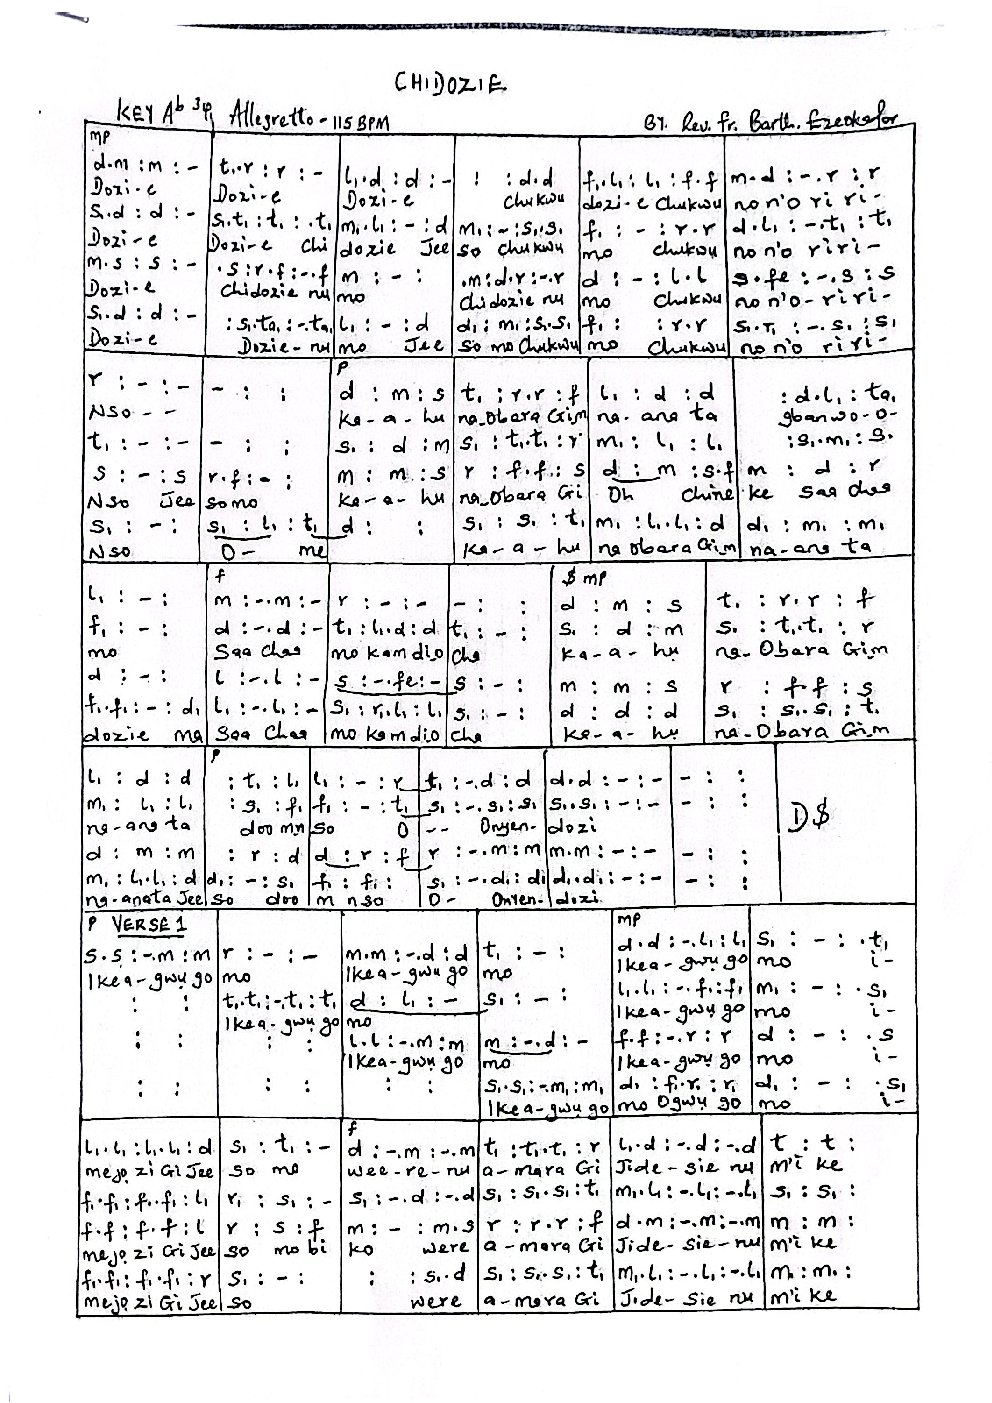 CHIDOZIE
KEY Ab 3/4 Allegretto - 115 BPM BY. Rev. Fr. Barth. Ezeokafor
mp
d.m : m : - | t₁.r : r : - | l₁.d : d : - | : : d.d | f₁.l₁ : l₁ : f.f | m.d : -.r : r
Dozi-e | Dozi-e | Dozi-e | Chukwu | dozi-e Chukwu | no n'o riri-
s₁.d : d : - | s₁.t₁ : t₁ : .t₁ | m₁.l₁ : - : d | m₁ : - : s₁.s₁ | f₁ : - : r.r | d.l₁ : -.t₁ : t₁
Dozi-e | Dozi-e Chi | dozie Jee | so Chukwu | mo Chukwu | no n'o riri-
m.s : s : - | .s : r.f : -.f | m : - : | .m : d.r : -.r | d : - : l.l | s.fe : -.s : s
Dozi-e | Chidozie nu | mo | chidozie nu | mo Chukwu | no n'o-riri-
s₁.d : d : - | : s₁.ta₁ : -.ta₁ | l₁ : - : d | d₁ : m₁ : s₁.s₁ | f₁ : : r.r | s₁.r₁ : -.s₁ : s₁
Dozi-e | Dozie-nu | mo Jee | so mo Chukwu | mo Chukwu | no n'o-riri-
p
r : - : - | - : : | d : m : s | t₁ : r.r : f | l₁ : d : d | : d.l₁ : ta₁
Nso - - | ka-a-hu | na_Obara Gim | na-ana ta | gbanwo-o-
t₁ : - : - | - : : | s₁ : d : m | s₁ : t₁.t₁ : r | m₁ : l₁ : l₁ | : s₁.m₁ : s₁
s : - : s | r.f : - : | m : m : s | r : f.f : s | d : m : s.f | m : d : r
Nso Jee | so mo | ka-a-hu | na_Obara Gi | Oh Chine | ke Saa chaa
s₁ : - : | s₁ : l₁ : t₁ | d : : | s₁ : s₁ : t₁ | m₁ : l₁.l₁ : d | d₁ : m₁ : m₁
Nso | O- me | ka-a-hu | na Obara Gim | na-ana ta
f $ mp
l₁ : - : | m : -.m : - | r : - : - | - : : | d : m : s | t₁ : r.r : f
f₁ : - : | d : -.d : - | t₁ : l₁.d : d | t₁ : - : | s₁ : d : m | s₁ : t₁.t₁ : r
mo | Saa Chaa | mo kam dio | cha | ka-a-hu | na-Obara Gim
d : - : | l : -.l : - | s : -.fe : - | s : - : | m : m : s | r : f.f : s
f₁.f₁ : - : d₁ | l₁ : -.l₁ : - | s₁ : r₁.l₁ : l₁ | s₁ : - : | d : d : d | s₁ : s₁.s₁ : t₁
dozie ma | Saa Chaa | mo kam dio | cha | ka-a-hu | na-Obara Gim
p
l₁ : d : d | : t₁ : l₁ | l₁ : - : r | t₁ : -.d : d | d.d : - : - | - : : | D$
m₁ : l₁ : l₁ | : s₁ : f₁ | f₁ : - : t₁ | s₁ : -.s₁ : s₁ | s₁.s₁ : - : - | - : :
na-ana ta | doo mn | so O | -- Onyen- | dozi
d : m : m | : r : d | d : r : f | r : -.m : m | m.m : - : - | - : :
m₁ : l₁.l₁ : d | d₁ : - : s₁ | f₁ : f₁ : | s₁ : -.d₁ : d₁ | d₁.d₁ : - : - | - : :
na-anata Jee | so doo | m nso | O- Onyen- | dozi
p VERSE 1 mp
s.s : -.m : m | r : - : - | m.m : -.d : d | t₁ : - : | d.d : -.l₁ : l₁ | s₁ : - : .t₁
Ikea-gwụ go | mo | Ikea-gwụ go | mo | Ikea-gwụ go | mo i-
: : | t₁.t₁ : -.t₁ : t₁ | d : l₁ : - | s₁ : - : | l₁.l₁ : -.f₁ : f₁ | m₁ : - : .s₁
Ikea-gwụ go | mo | Ikea-gwụ go | mo i-
: : | : : | l.l : -.m : m | m : -.d : - | f.f : -.r : r | d : - : .s
Ikea-gwụ go | mo | Ikea-gwụ go | mo i-
: : | : : | : : | s₁.s₁ : -.m₁ : m₁ | d₁ : f₁.r₁ : r₁ | d₁ : - : .s₁
Ikea-gwụ go | mo Ogwụ go | mo i-
f
l₁.l₁ : l₁.l₁ : d | s₁ : t₁ : - | d : -.m : -.m | t₁ : t₁.t₁ : r | l₁.d : -.d : -.d | t : t :
mejọ zi Gi Jee | so mo | wee-re-nu | a-mara Gi | Jide-sie nu | m'i ke
f₁.f₁ : f₁.f₁ : l₁ | r₁ : s₁ : - | s₁ : -.d : -.d | s₁ : s₁.s₁ : t₁ | m₁.l₁ : -.l₁ : -.l₁ | s₁ : s₁ :
f.f : f.f : l | r : s : f | m : - : m.s | r : r.r : f | d.m : -.m : -.m | m : m :
mejọ zi Gi Jee | so mo bi | ko were | a-mara Gi | Jide-sie-nu | m'i ke
f₁.f₁ : f₁.f₁ : r | s₁ : - : | : : s₁.d | s₁ : s₁.s₁ : t₁ | m₁.l₁ : -.l₁ : -.l₁ | m₁ : m₁ :
mejọ zi Gi Jee | so | were | a-mara Gi | Jide-sie nu | m'i ke